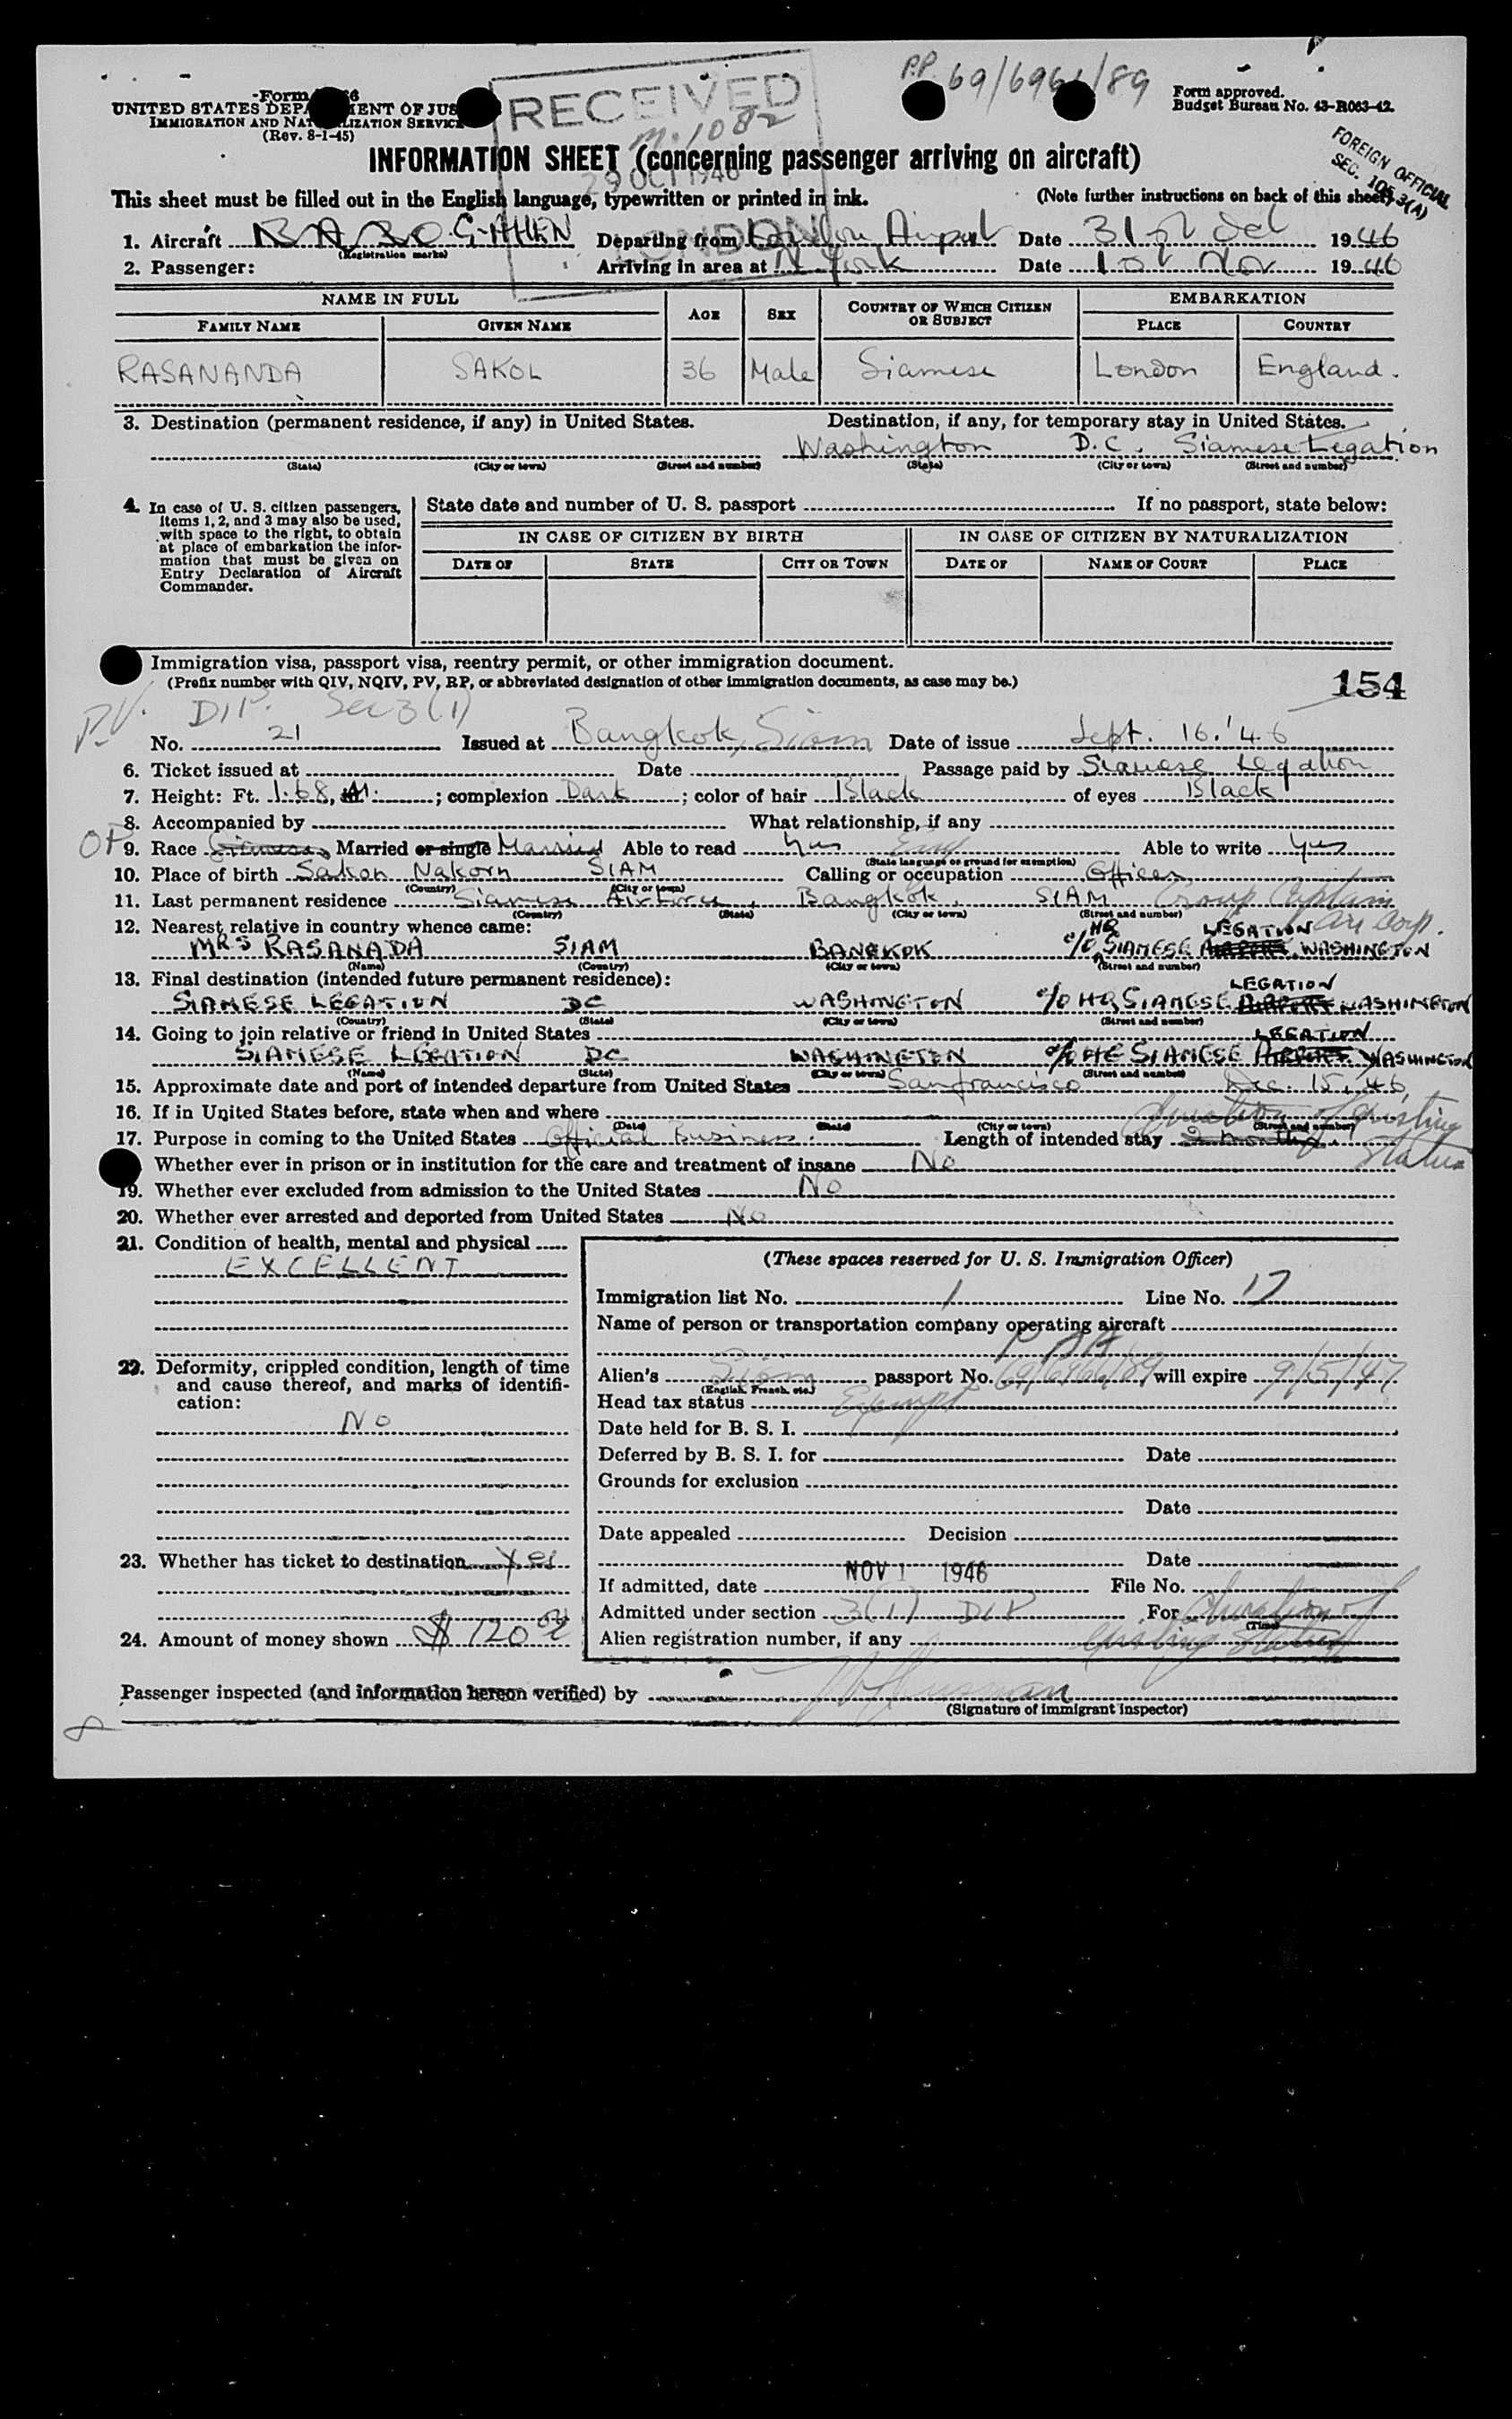 RECEIVED
29 OCT 1946
LONDON
P.P. 69/6966/89
M. 1082
UNITED STATES DEPARTMENT OF JUSTICE
IMMIGRATION AND NATURALIZATION SERVICE
(Rev. 8-1-45)
Form approved.
Budget Bureau No. 43-R063-42.
FOREIGN OFFICIAL
SEC. 105.3(A)
INFORMATION SHEET (concerning passenger arriving on aircraft)
This sheet must be filled out in the English language, typewritten or printed in ink. (Note further instructions on back of this sheet)
1. Aircraft (Registration marks) Departing from London Airport Date 31st Oct 1946
2. Passenger: Arriving in area at N York Date 1st Nov 1946
NAME IN FULL AGE SEX COUNTRY OF WHICH CITIZEN OR SUBJECT EMBARKATION
FAMILY NAME GIVEN NAME PLACE COUNTRY
RASANANDA SAKOL 36 Male Siamese London England.
3. Destination (permanent residence, if any) in United States. Destination, if any, for temporary stay in United States.
Washington D.C. Siamese Legation
(State) (City or town) (Street and number) (State) (City or town) (Street and number)
4. In case of U. S. citizen passengers, items 1, 2, and 3 may also be used, with space to the right, to obtain at place of embarkation the information that must be given on Entry Declaration of Aircraft Commander.
State date and number of U. S. passport If no passport, state below:
IN CASE OF CITIZEN BY BIRTH IN CASE OF CITIZEN BY NATURALIZATION
DATE OF STATE CITY OR TOWN DATE OF NAME OF COURT PLACE
Immigration visa, passport visa, reentry permit, or other immigration document.
(Prefix number with QIV, NQIV, PV, RP, or abbreviated designation of other immigration documents, as case may be.)
154
P.V. DIP. Sec 3(1)
No. 21 Issued at Bangkok, Siam Date of issue Sept. 16. '46
6. Ticket issued at Date Passage paid by Siamese Legation
7. Height: Ft. 1.68, M. ; complexion Dark ; color of hair Black of eyes Black
8. Accompanied by What relationship, if any
9. Race Siamese, Married or single Married Able to read Yes Eng Able to write Yes
(State language or ground for exemption)
10. Place of birth Sakon Nakorn SIAM Calling or occupation Officer
(Country) (City or town)
11. Last permanent residence Siamese Air Force, Bangkok, SIAM Group Captain
(Country) (State) (City or town) (Street and number)
Air Corp.
12. Nearest relative in country whence came: HQ LEGATION
MRS RASANADA SIAM BANGKOK c/o SIAMESE AIRPORT, WASHINGTON
(Name) (Country) (City or town) (Street and number)
13. Final destination (intended future permanent residence): LEGATION
SIAMESE LEGATION DC WASHINGTON c/o HQ SIAMESE AIRPORT WASHINGTON
(Country) (State) (City or town) (Street and number)
14. Going to join relative or friend in United States LEGATION
SIAMESE LEGATION DC WASHINGTON c/o HE SIAMESE AIRPORT WASHINGTON
(Name) (State) (City or town) (Street and number)
15. Approximate date and port of intended departure from United States San Francisco Dec. 15, '46
16. If in United States before, state when and where
(Date) (State) (City or town) (Street and number)
duration of existing status
17. Purpose in coming to the United States Official Business. Length of intended stay 2 months.
Whether ever in prison or in institution for the care and treatment of insane No
19. Whether ever excluded from admission to the United States No
20. Whether ever arrested and deported from United States No
21. Condition of health, mental and physical
EXCELLENT
22. Deformity, crippled condition, length of time and cause thereof, and marks of identification:
No
23. Whether has ticket to destination Yes
24. Amount of money shown $ 120
(These spaces reserved for U. S. Immigration Officer)
Immigration list No. 1 Line No. 17
Name of person or transportation company operating aircraft
PAA
Alien's Siam passport No. 69/6966/89 will expire 9/5/47
(English, French, etc.)
Head tax status Exempt
Date held for B. S. I.
Deferred by B. S. I. for Date
Grounds for exclusion
Date
Date appealed Decision
Date
If admitted, date NOV 1 1946 File No.
Admitted under section 3(1) DIP For duration of
(Time)
Alien registration number, if any existing status
Passenger inspected (and information hereon verified) by
(Signature of immigrant inspector)